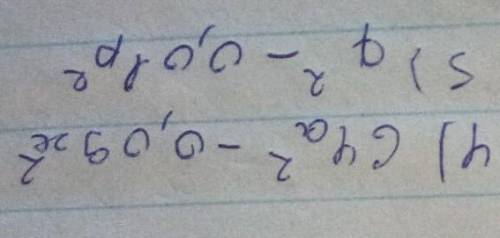 4) 64a² - 0,09x²
5) q² - 0,01p²